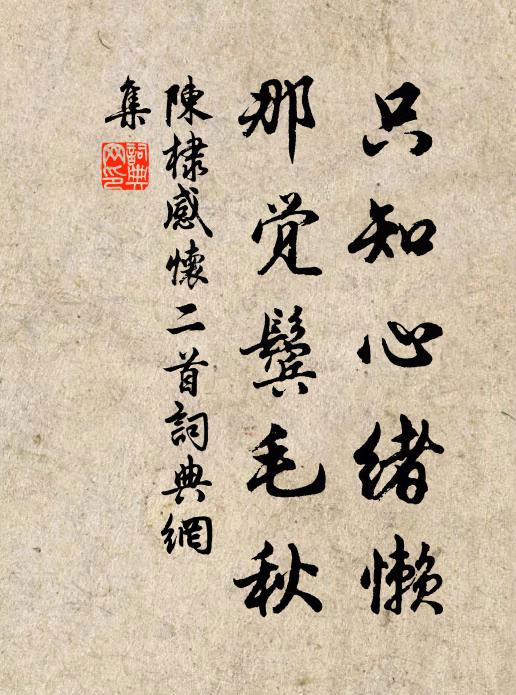 只知心绪懒
那觉鬓毛秋
陳棣感懷二首詞典網
集
詞典网印